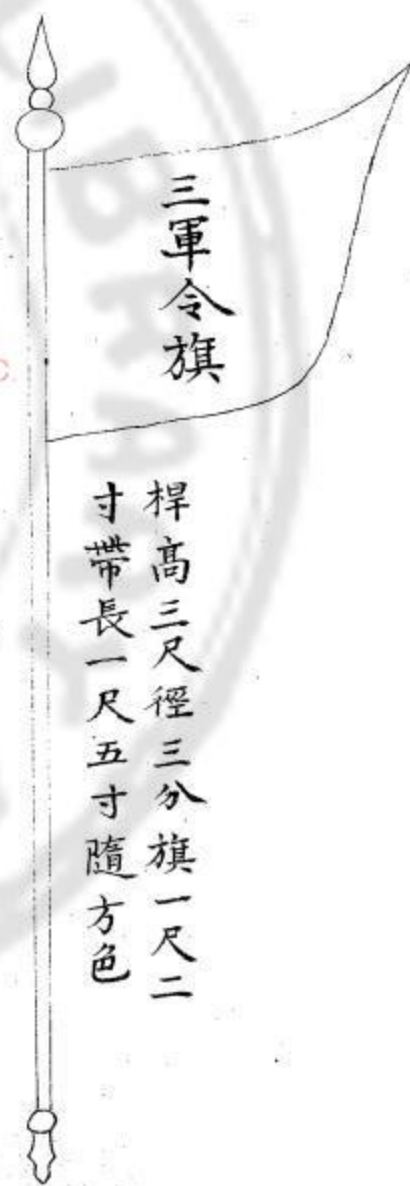 三軍令旗
桿高三尺徑三分旗一尺二
寸帶長一尺五寸隨方色